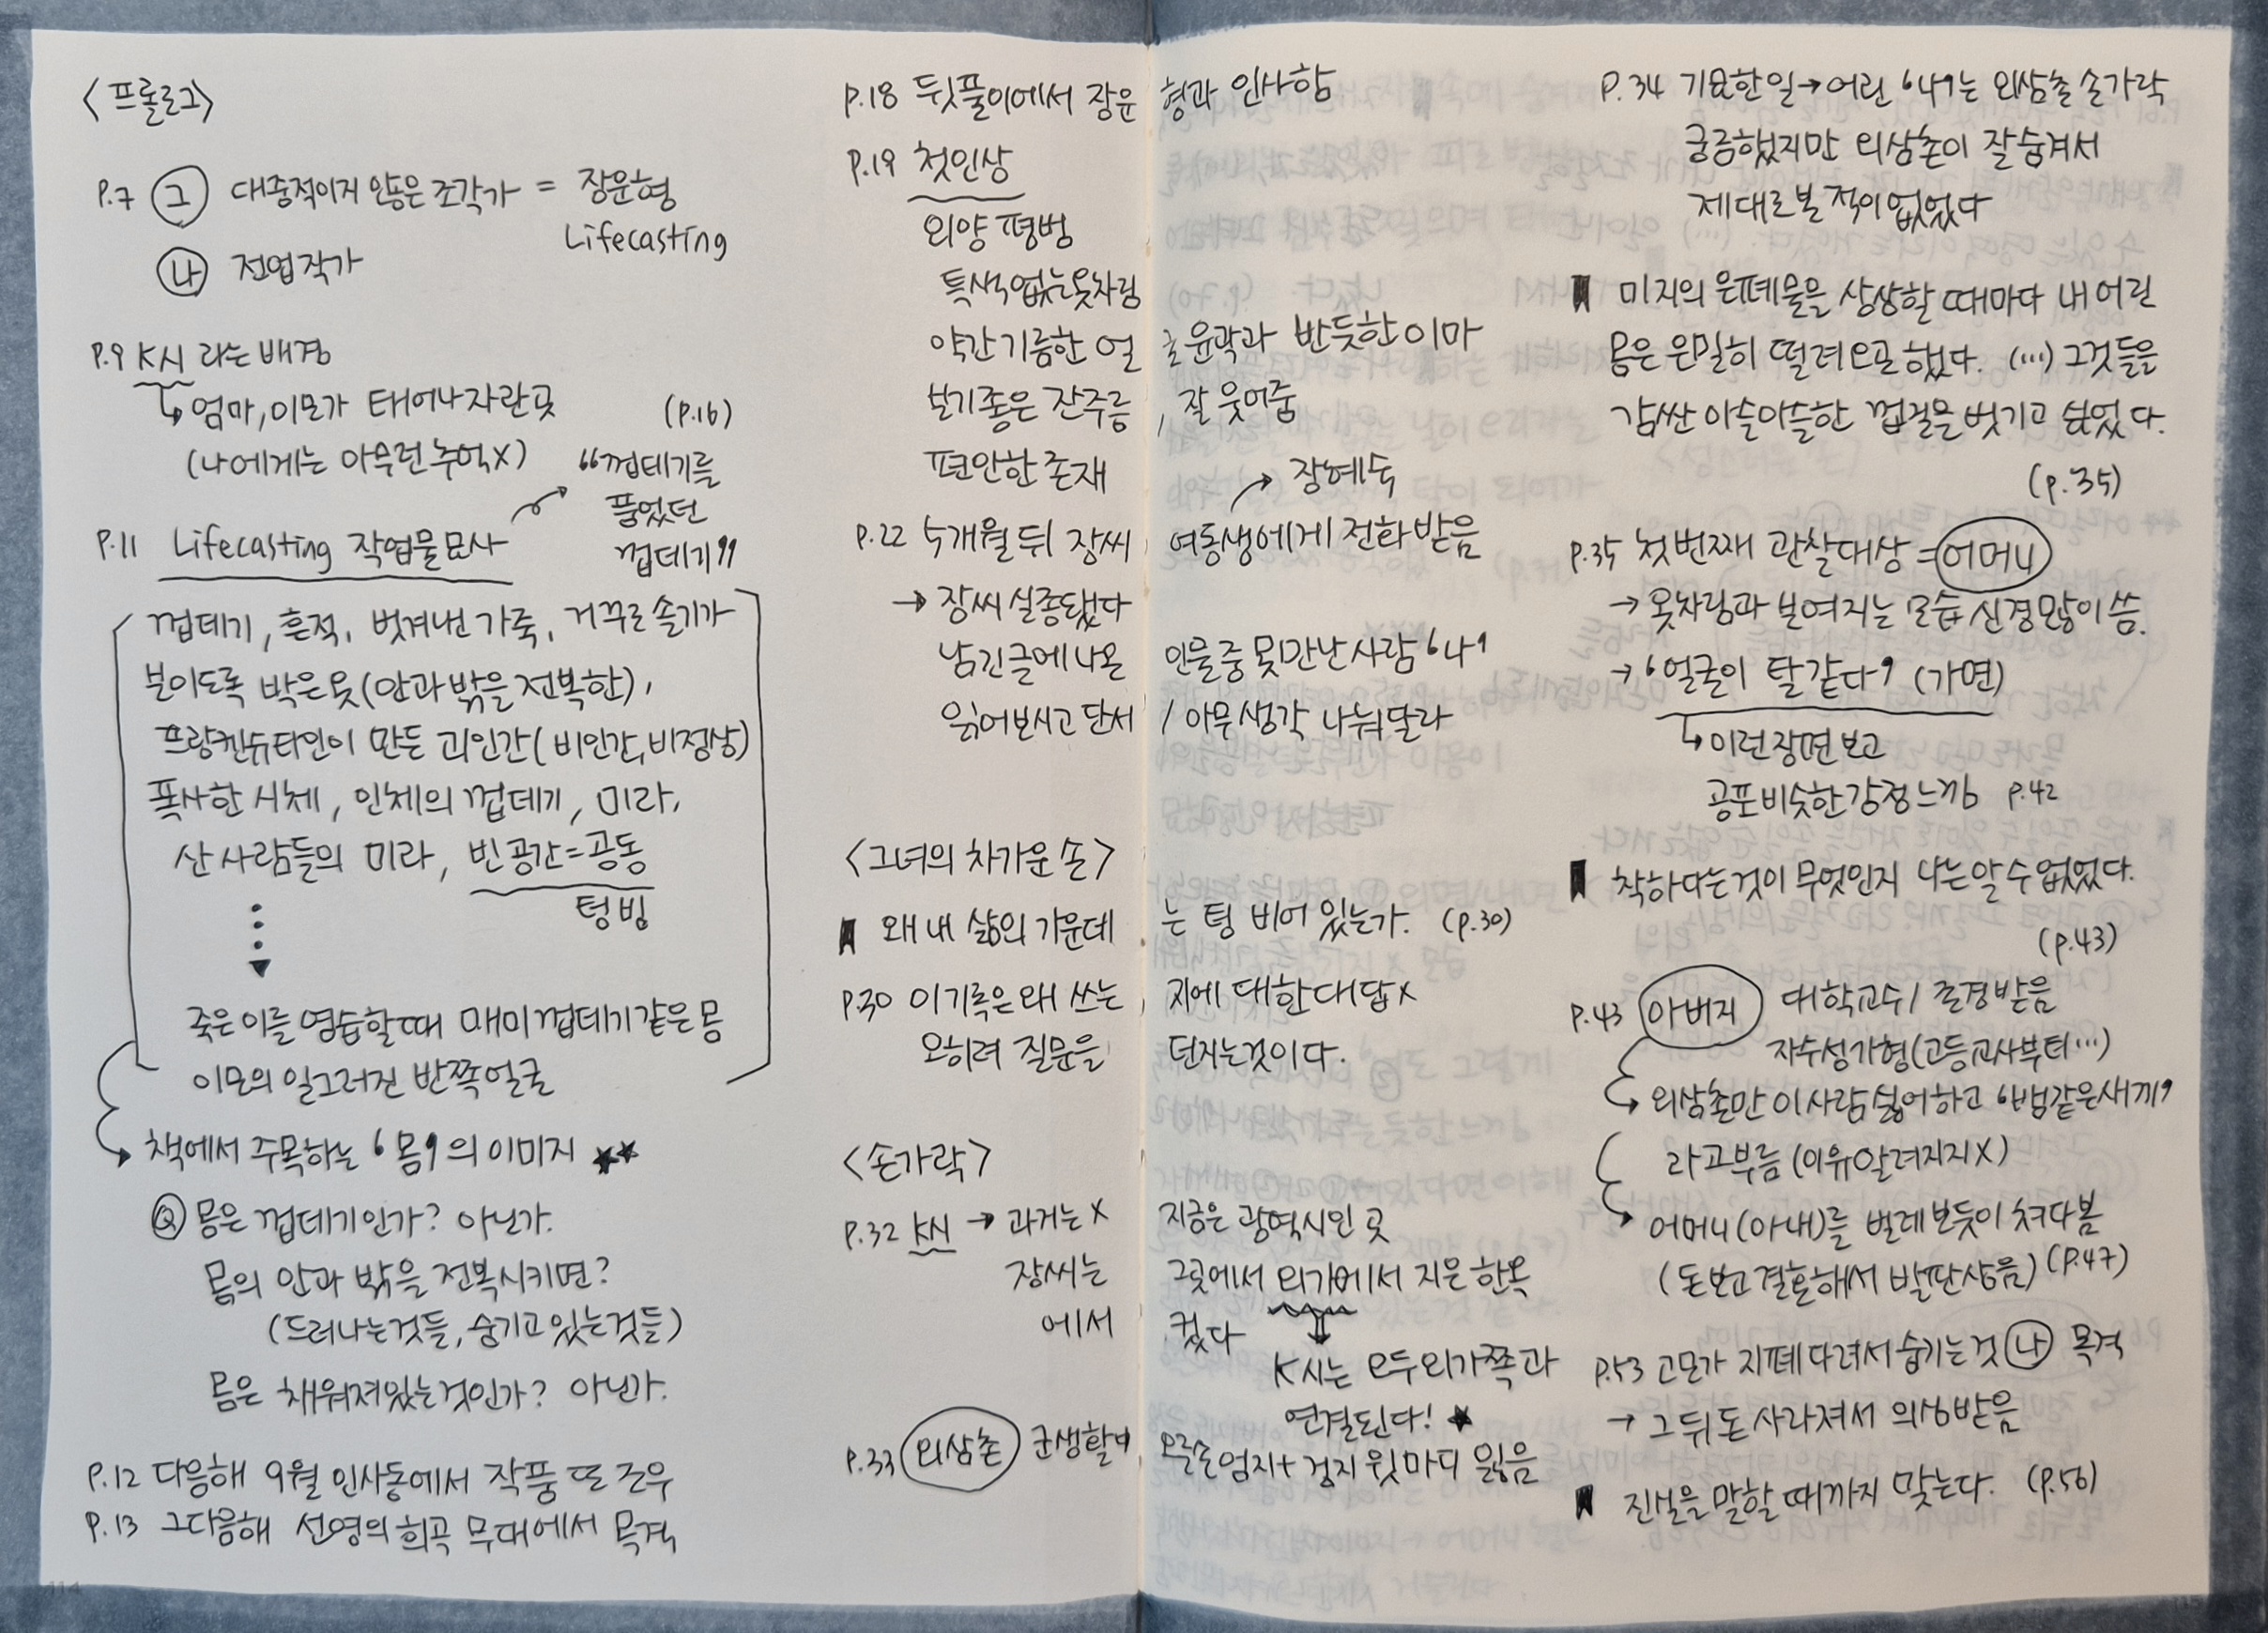 <프롤로그>
P.7 그 대중적이지 않은 조각가 = 장운형
Lifecasting
나 전업작가
P.9 K시 라는 배경
↳ 엄마, 이모가 태어나 자란 곳
(나에게는 아무런 추억X)
(P.16)
"껍데기를
품었던
껍데기"
P.11 Lifecasting 작업물 묘사
껍데기, 흔적, 벗겨낸 가죽, 거꾸로 솔기가
보이도록 박은 옷(안과 밖을 전복한),
프랑켄슈타인이 만든 괴인간(비인간,비정상)
폭사한 시체, 인체의 껍데기, 미라,
산 사람들의 미라, 빈 공간=공동
텅빔
죽은 이를 염습할 때 매미껍데기 같은 몸
이모의 일그러진 반쪽 얼굴
책에서 주목하는 '몸'의 이미지 ★★
Q 몸은 껍데기인가? 아닌가.
몸의 안과 밖을 전복시키면?
(드러나는것들, 숨기고 있는것들)
몸은 채워져있는 것인가? 아닌가.
P.12 다음해 9월 인사동에서 작품 또 조우
P.13 그다음해 선영의 희곡 무대에서 목격
P.18 뒷풀이에서 장운형과 인사함
P.19 첫인상
외양 평범
특색없는옷차림
약간 기름한 얼굴 윤곽과 반듯한 이마
보기좋은 잔주름, 잘 웃어줌
편안한 존재
→ 장혜숙
P.22 5개월 뒤 장씨 여동생에게 전화 받음
→ 장씨 실종됐다
남긴 글에 나온 인물 중 못만난 사람 '나'
읽어보시고 단서 / 아무 생각 나눠달라
<그녀의 차가운 손>
왜 내 삶의 가운데는 텅 비어 있는가. (P.30)
P.30 이 기록은 왜 쓰는지에 대한 대답X
오히려 질문을 던지는것이다.
<손가락>
P.32 K시 → 과거는 X 지금은 광역시인 곳
장씨는 그곳에서 외가에서 지은 한옥
에서 컸다
K시는 모두 외가쪽과
연결된다! ★
P.33 외삼촌 군생활때 오른손 엄지+검지 윗마디 잃음
P.34 기묘한 일→어린 '나'는 외삼촌 손가락
궁금했지만 외삼촌이 잘 숨겨서
제대로 볼 적이 없었다
미지의 은폐물을 상상할 때마다 내 어린
몸은 은밀히 떨려오곤 했다. (…) 그것들을
감싼 아슬아슬한 껍질을 벗기고 싶었다.
(P.35)
P.35 첫번째 관찰대상 = 어머니
→ 옷차림과 보여지는 모습 신경많이 씀.
→ '얼굴이 탈같다' (가면)
↳ 이런장면 보고
공포비슷한 감정 느낌 P.42
착하다는것이 무엇인지 나는 알 수 없었다.
(P.43)
P.43 아버지 대학교수 / 존경받음
자수성가형(고등교사부터…)
외삼촌만 이사람 싫어하고 '뱀같은새끼'
라고부름 (이유알려지지X)
어머니(아내)를 벌레 보듯이 쳐다봄
(돈보고 결혼해서 발판삼음) (P.47)
P.53 고모가 지폐 다려서 숨기는 것 나 목격
→ 그 뒤 돈 사라져서 의심받음
진실을 말할 때까지 맞는다. (P.56)